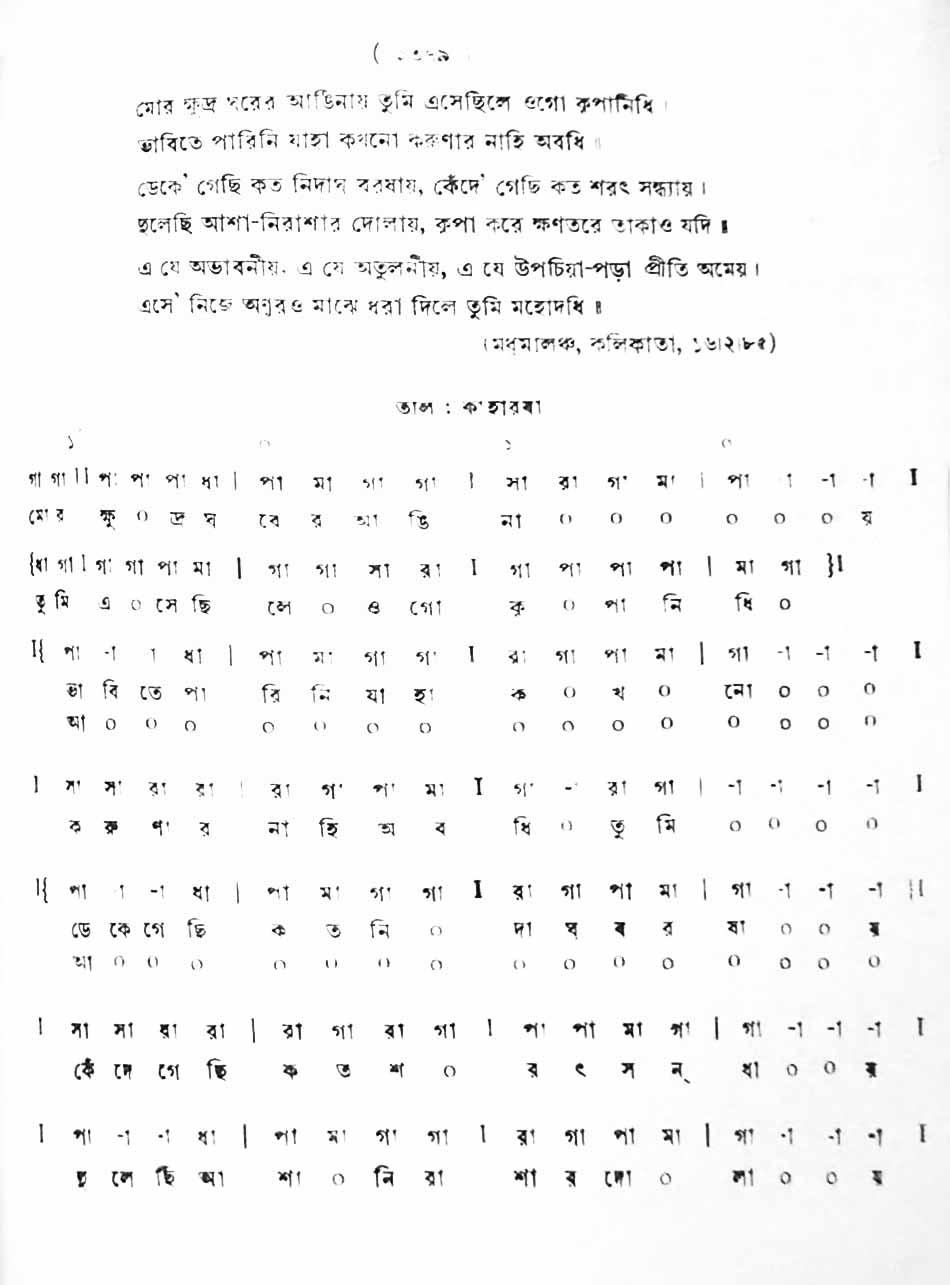 মোর ক্ষুদ্র ঘরের আঙিনায় তুমি এসেছিলে ওগো কৃপানিধি।
ভাবিতে পারিনি যাহা কখনো করুণার নাহি অবধি॥
ডেকে' গেছি কত নিদাঘ বরষায়, কেঁদে' গেছি কত শরৎ সন্ধ্যায়।
দুলেছি আশা-নিরাশার দোলায়, কৃপা করে ক্ষণতরে তাকাও যদি॥
এ যে অভাবনীয়, এ যে অতুলনীয়, এ যে উপচিয়া-পড়া প্রীতি অমেয়।
এসে' নিজে অণুরও মাঝে ধরা দিলে তুমি মহোদধি॥
(মধুমালঞ্চ, কলিকাতা, ১৬।২।৮৫)
তাল : কাহারবা
১ ০ ১ ০
গা গা ।। পা পা পা ধা | পা মা গা গা । সা রা গা মা | পা -া -া -া I
মোর ক্ষু ০ দ্র ঘ রে র আ ঙি না ০ ০ ০ ০ ০ ০ য়
{ধা গা । গা গা পা মা | গা গা সা রা I গা পা পা পা | মা গা }।
তু মি এ ০ সে ছি লে ০ ও গো কৃ ০ পা নি ধি ০
I{ পা -া -া ধা | পা মা গা গা I রা গা পা মা | গা -া -া -া I
ভা বি তে পা রি নি যা হা ক ০ খ ০ নো ০ ০ ০
আ ০ ০ ০ ০ ০ ০ ০ ০ ০ ০ ০ ০ ০ ০ ০
। সা সা রা রা | রা গা পা মা I গা -া রা গা | -া -া -া -া I
ক রু ণা র না হি অ ব ধি ০ তু মি ০ ০ ০ ০
I{ পা -া -া ধা | পা মা গা গা I রা গা পা মা | গা -া -া -া }।
ডে কে গে ছি ক ত নি ০ দা ঘ ব র ষা ০ ০ য়
আ ০ ০ ০ ০ ০ ০ ০ ০ ০ ০ ০ ০ ০ ০ ০
। সা সা ধা রা | রা গা রা গা । পা পা মা গা | গা -া -া -া I
কেঁ দে গে ছি ক ত শ ০ র ৎ স ন্ ধা ০ ০ য়
। পা -া -া ধা | পা মা গা গা । রা গা পা মা | গা -া -া -া I
দু লে ছি আ শা ০ নি রা শা র দো ০ লা ০ ০ য়